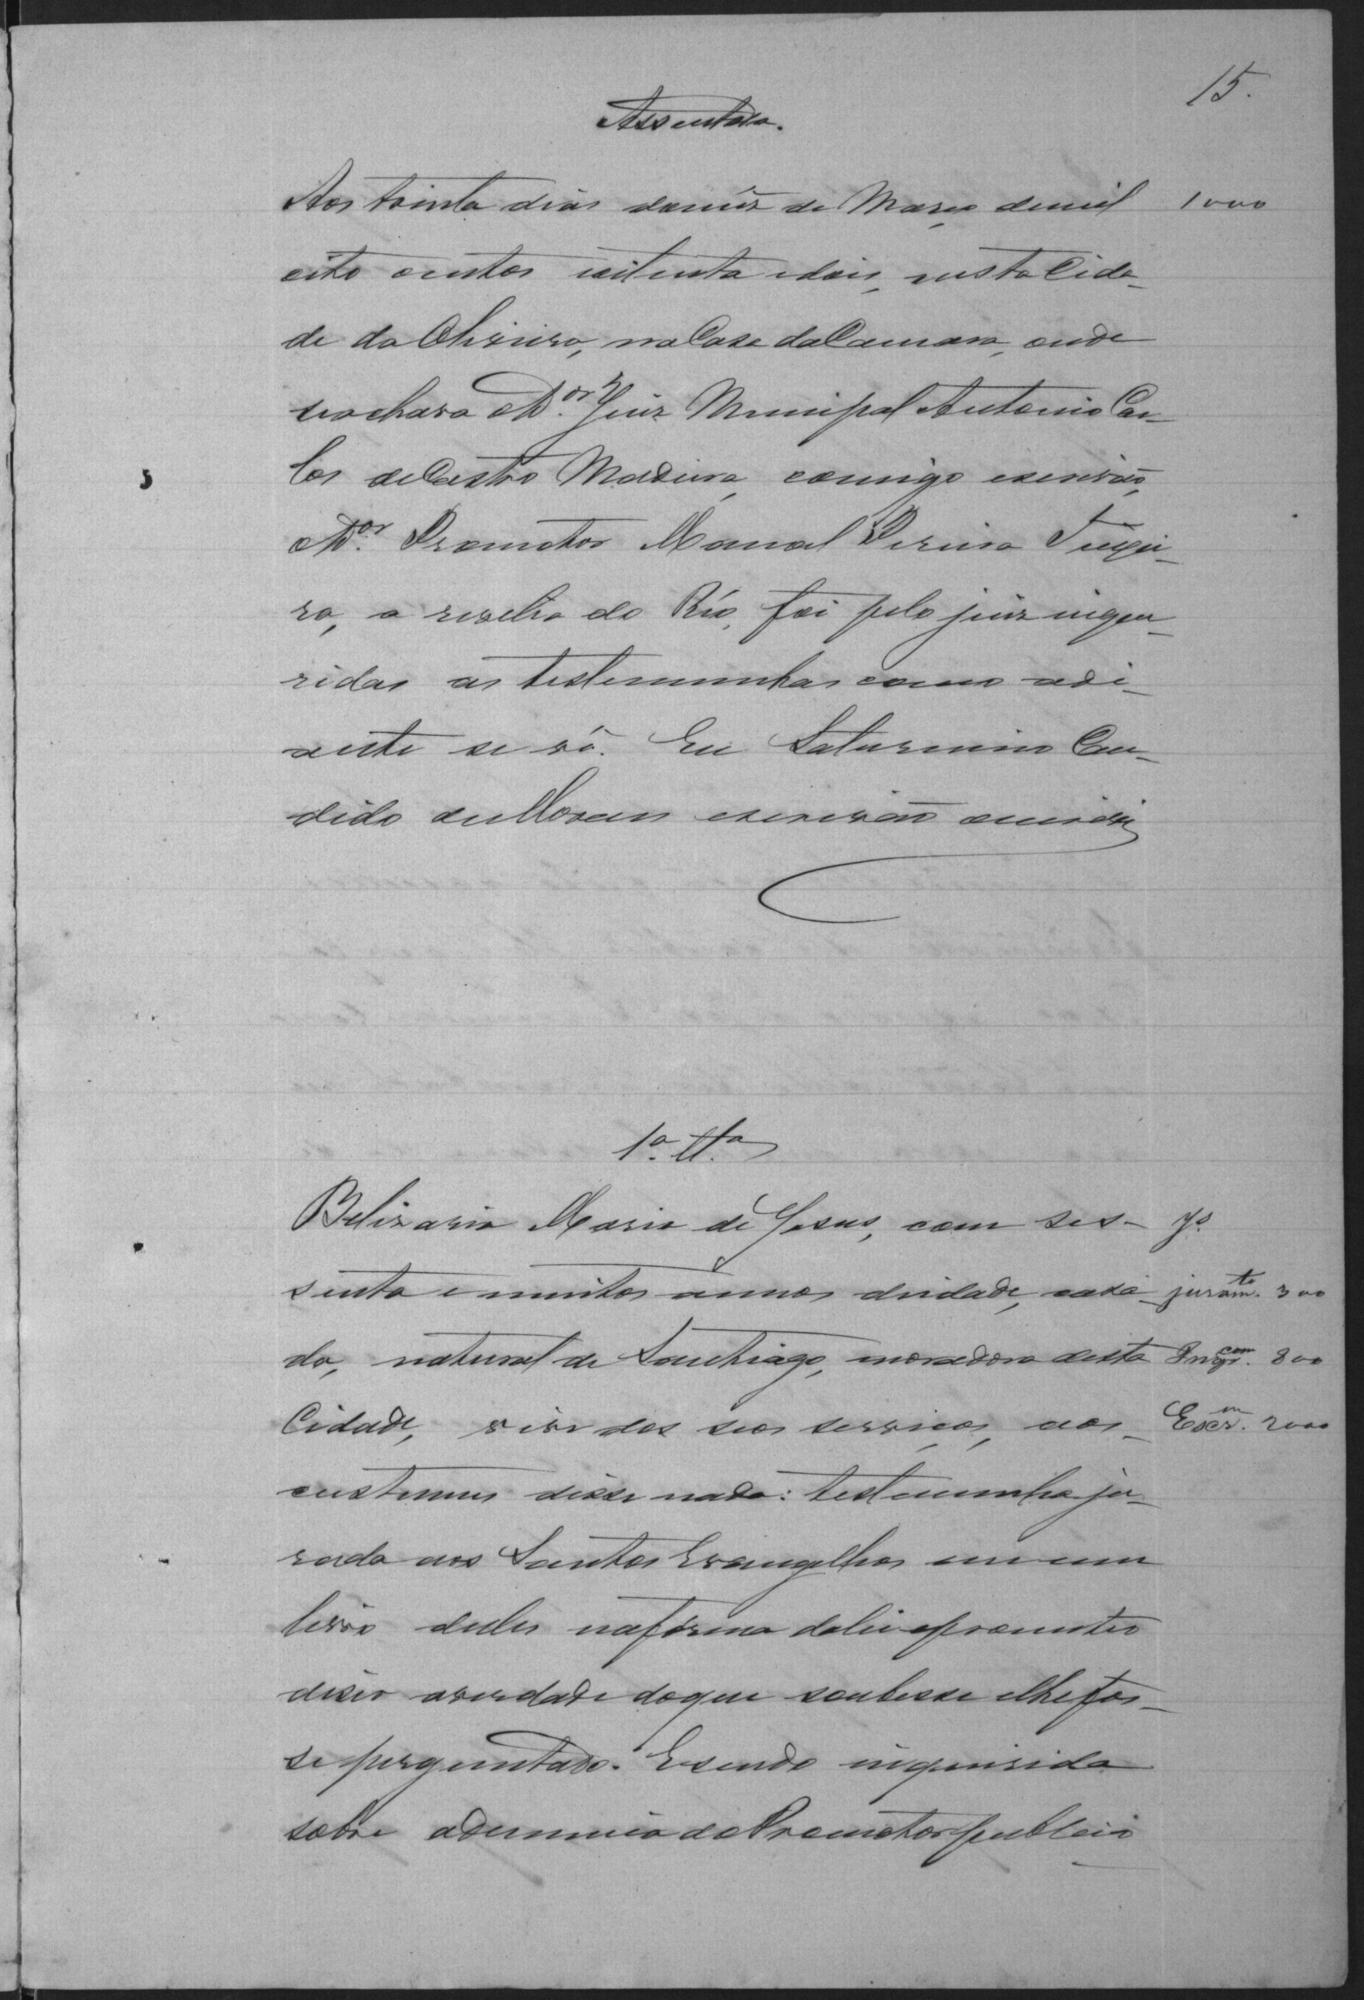 15.
Assentada.
Aos trinta dias do mez de Março de mil 1000
oito centos oitenta e dois, nesta Cida-
de da Oliveira, na Casa da Camara, onde
se achava o D.or Juiz Municipal Antonio Car-
los de Castro Madeira, comigo escrivão,
o D.or Promotor Manoel Pereira Teixei-
ra, a revelia do Réo, foi pelo juiz inque-
ridas as testemunhas como adi-
ante se vê. Eu Saturnino Can-
dido de Moraes escrivão escrevi
1.a tt.a
Belizaria Maria de Jesus, com ses- J.s
senta e muitos annos de idade, casa- juram.to 300
da, natural de Santhiago, moradora desta Inqr. 800
Cidade, vive dos seos serviços, aos Escr. 2000
custumes disse nada: testemunha ju-
rada aos Santos Evangelhos em um
livro delles na forma da lei e prometeo
diser a verdade do que soubesse e lhe fos-
se perguntado. E sendo inquirida
sobre a denuncia do Promotor publico